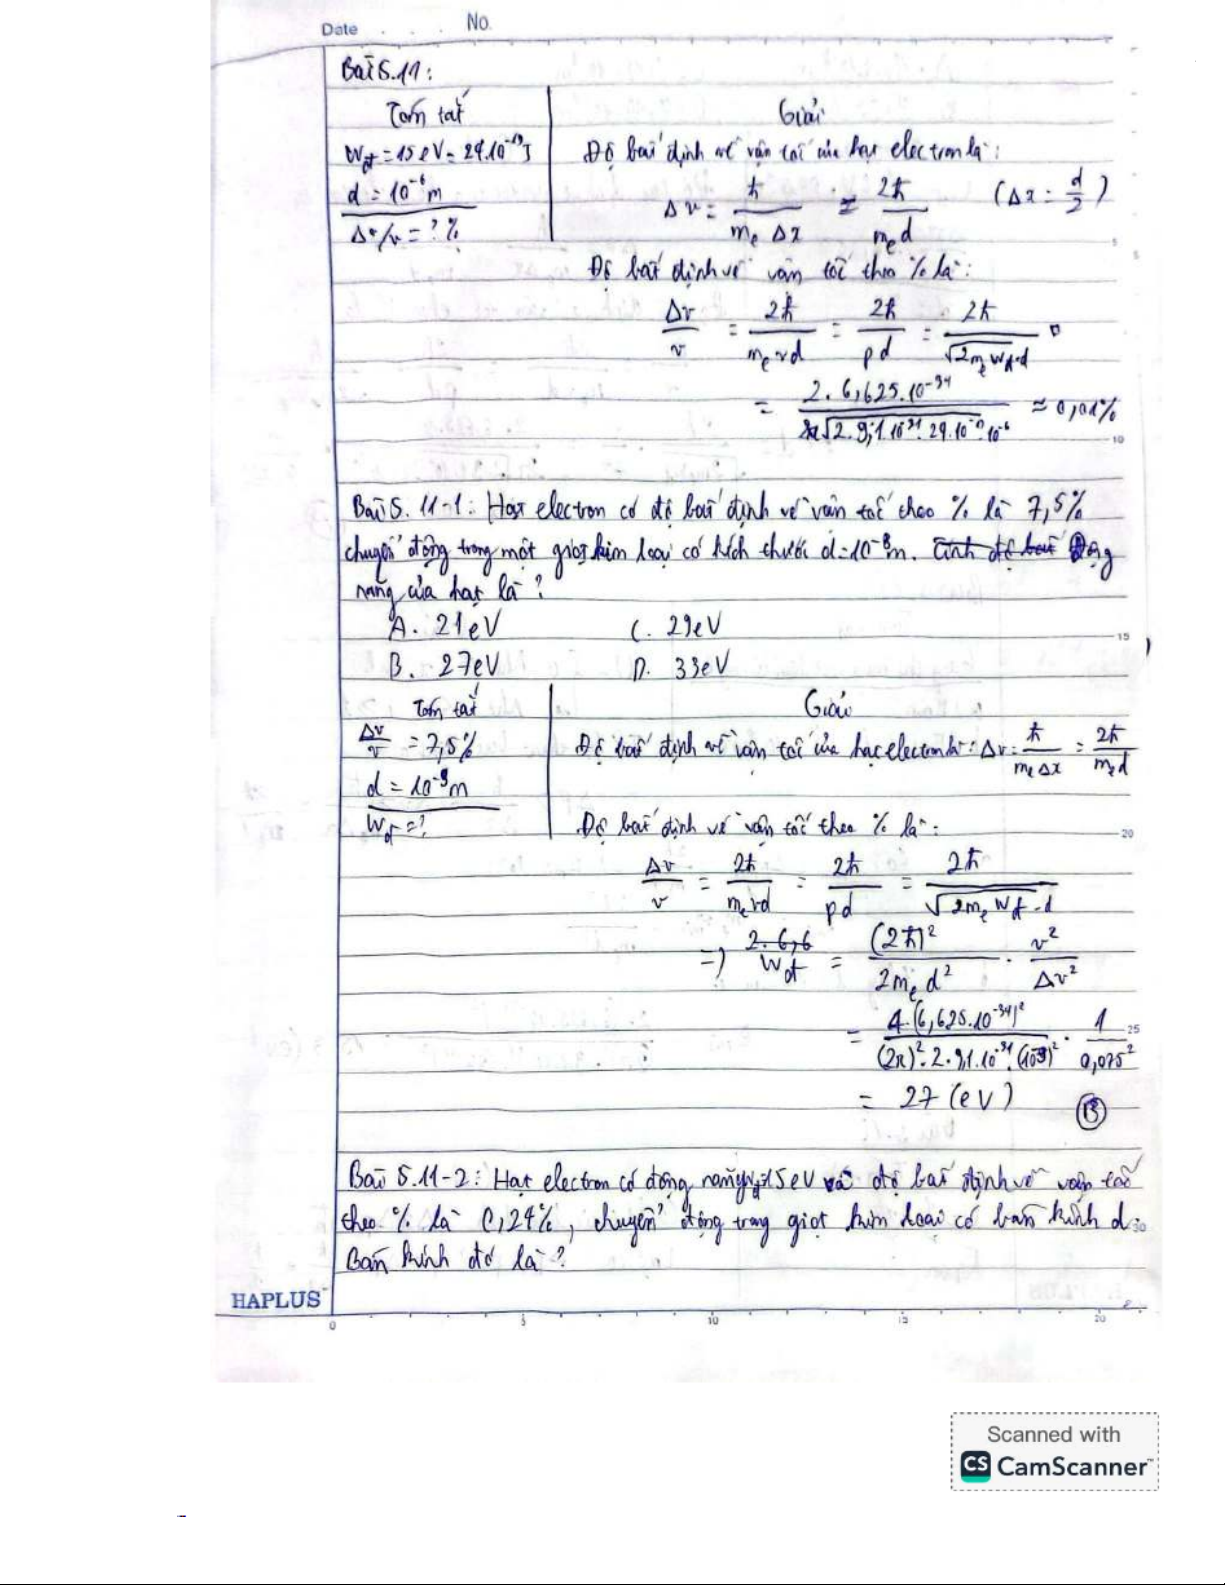 Date No.
Bài 5.11:
Tóm tắt Giải
Wđ = 15 eV = 24.10⁻¹⁹ J Độ bất định về vận tốc của hạt electron là:
d = 10⁻⁶ m Δv = ħ / (mₑ Δx) = 2ħ / (mₑ d) (Δx = d/2)
Δv/v = ? %
Độ bất định về vận tốc theo % là:
Δv/v = 2ħ / (mₑ v d) = 2ħ / (p d) = 2ħ / (√(2mₑ Wđ) . d)
= 2. 6,625.10⁻³⁴ / (2π √(2. 9,1.10⁻³¹. 24.10⁻¹⁹) 10⁻⁶) ≈ 0,01%
Bài 5. 11-1: Hạt electron có độ bất định về vận tốc theo % là 7,5%
chuyển động trong một giọt kim loại có kích thước d = 10⁻⁹ m. Tính độ bất Động
năng của hạt là ?
A. 21 eV C. 29 eV
B. 27 eV D. 33 eV
Tóm tắt Giải
Δv/v = 7,5% Độ bất định về vận tốc của hạt electron là: Δv = ħ / (mₑ Δx) = 2ħ / (mₑ d)
d = 10⁻⁹ m
Wđ = ? Độ bất định về vận tốc theo % là:
Δv/v = 2ħ / (mₑ v d) = 2ħ / (p d) = 2ħ / (√(2mₑ Wđ) . d)
=> 2. 6,6 Wđ = (2ħ)² / (2mₑ d²) . v² / Δv²
= 4. (6,625.10⁻³⁴)² / ((2π)². 2. 9,1.10⁻³¹. (10⁻⁹)²) . 1 / 0,075²
= 27 (eV) B
Bài 5.11-2: Hạt electron có động năng Wđ=15 eV và độ bất định về vận tốc
theo % là 0,24%, chuyển động trong giọt kim loại có bán kính d.
Bán kính đó là ?
HAPLUS
0 5 10 15 20
5
10
15
20
25
30
Scanned with
CS CamScanner